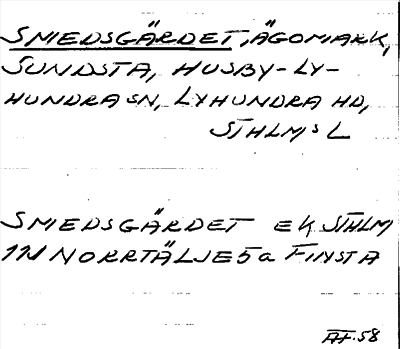 SMEDSGÄRDET, ÄGOMARK,
SUNDSTA, HUSBY-LY-
HUNDRA SN, LYHUNDRA HD,
STHLMS L
SMEDSGÄRDET EK STHLM
11N NORRTÄLJE 5a FINSTA
ÅF.58